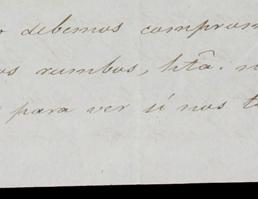 debemos comprom
os rumbos, hta. n
para ver si nos t